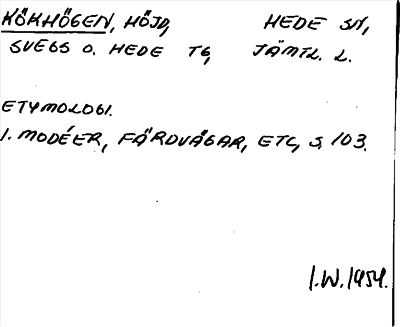 KÖKHÖGEN, HÖJD, HEDE SN,
SVEGS O. HEDE TG, JÄMTL. L.
ETYMOLOGI.
I. MODÉER, FÄRDVÄGAR, ETC, S. 103.
I.W. 1954.